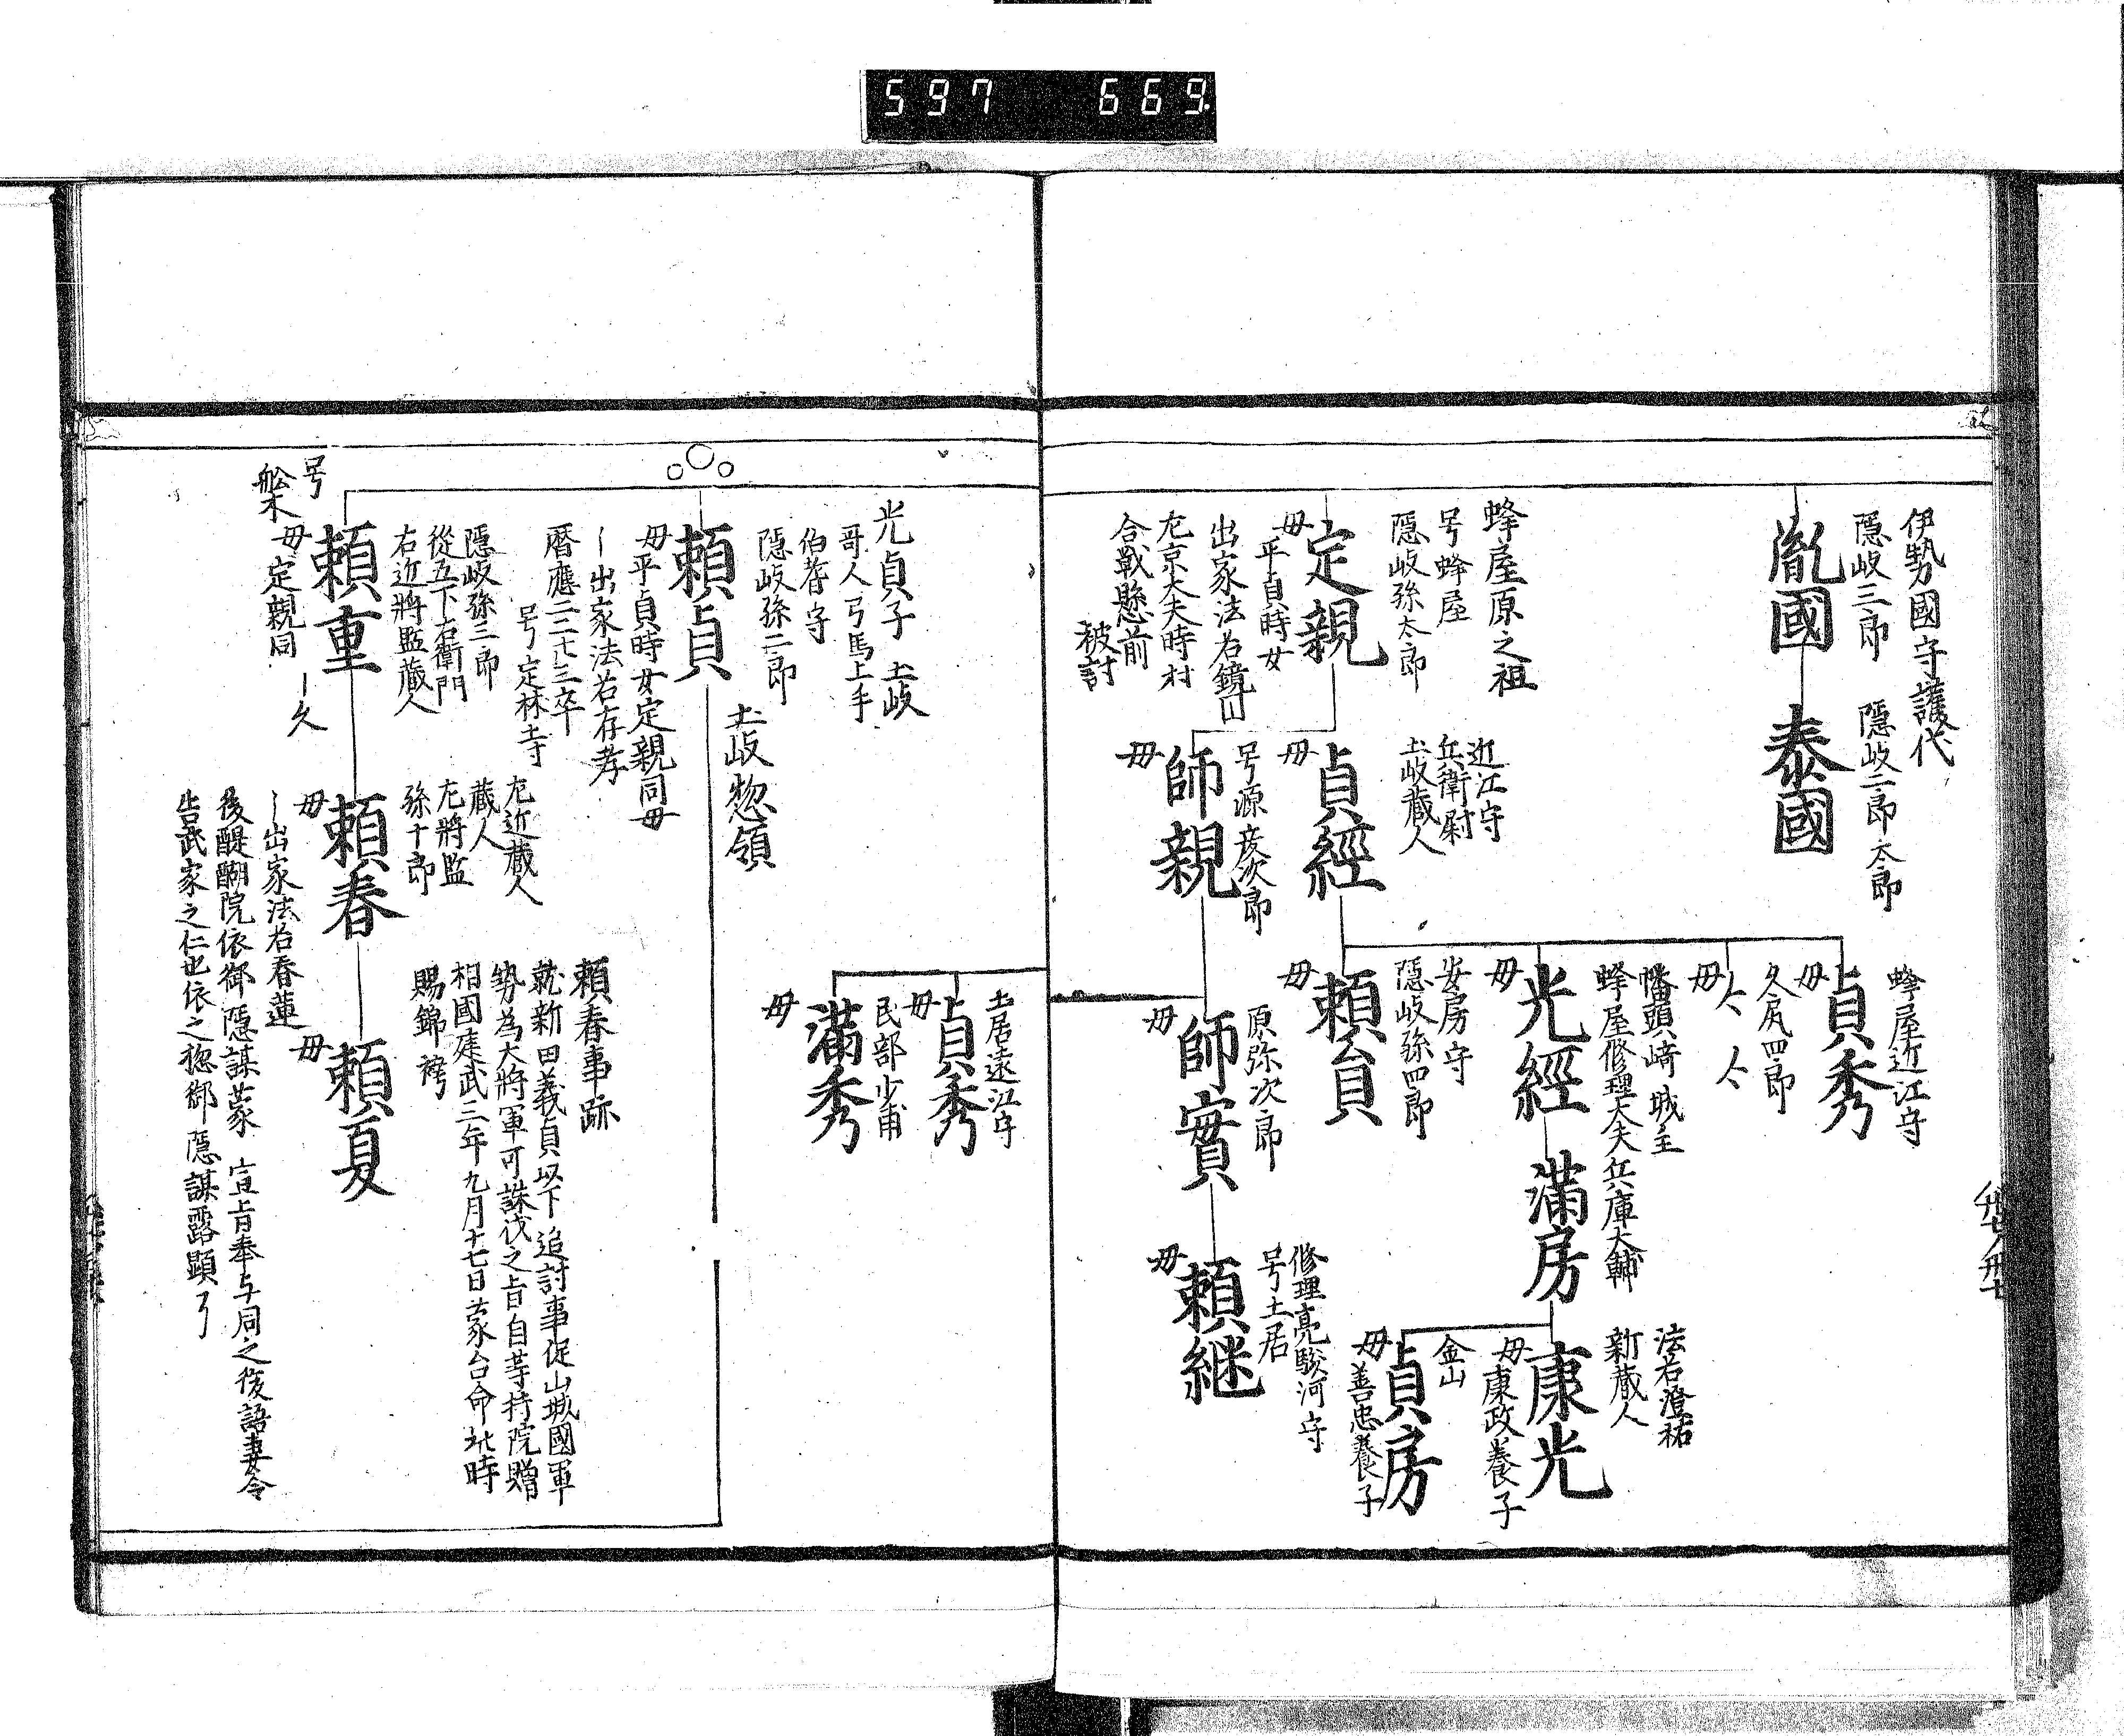 597 669.
伊勢國守護代
隠岐三郎
胤國
隠岐二郎太郎
泰國
蜂屋原之祖
号蜂屋
隠岐孫太郎
定親
母平貞時女
出家法名鏡山
左京大夫時村
合戦懸前
被討
近江守
兵衛尉
土岐蔵人
貞經
母
号源彦次郎
師親
母
蜂屋近江守
貞秀
母
久尻四郎
母
幡頭﨑城主
蜂屋修理大夫兵庫大輔
光經
母
満房
法名澄祐
新蔵人
康光
母康政養子
金山
貞房
母善忠養子
安房守
隠岐孫四郎
頼員
母
原弥次郎
師實
母
修理亮駿河守
号土居
頼継
母
土居遠江守
貞秀
母
民部少甫
満秀
母
光貞子 土岐
哥人弓馬上手
伯耆守
隠岐孫二郎
頼貞
土岐惣領
母平貞時女定親同母
出家法名存孝
暦應二二十三卒
号定林寺
隠岐孫三郎
從五下右衛門
右近將監蔵人
頼重
号
舩木
母定親同
久
左近蔵人
蔵人
左將監
孫十郎
頼春
母
出家法名春蓮
後醍醐院依御隠謀蒙 宣旨奉与同之後語妻令
告武家之仁也依之惣御隠謀露顕了
頼夏
母
頼春事跡
就新田義貞以下追討事促山城國軍
勢為大將軍可誅伐之旨自等持院贈
相國建武三年九月十七日蒙台命此時
賜錦袴